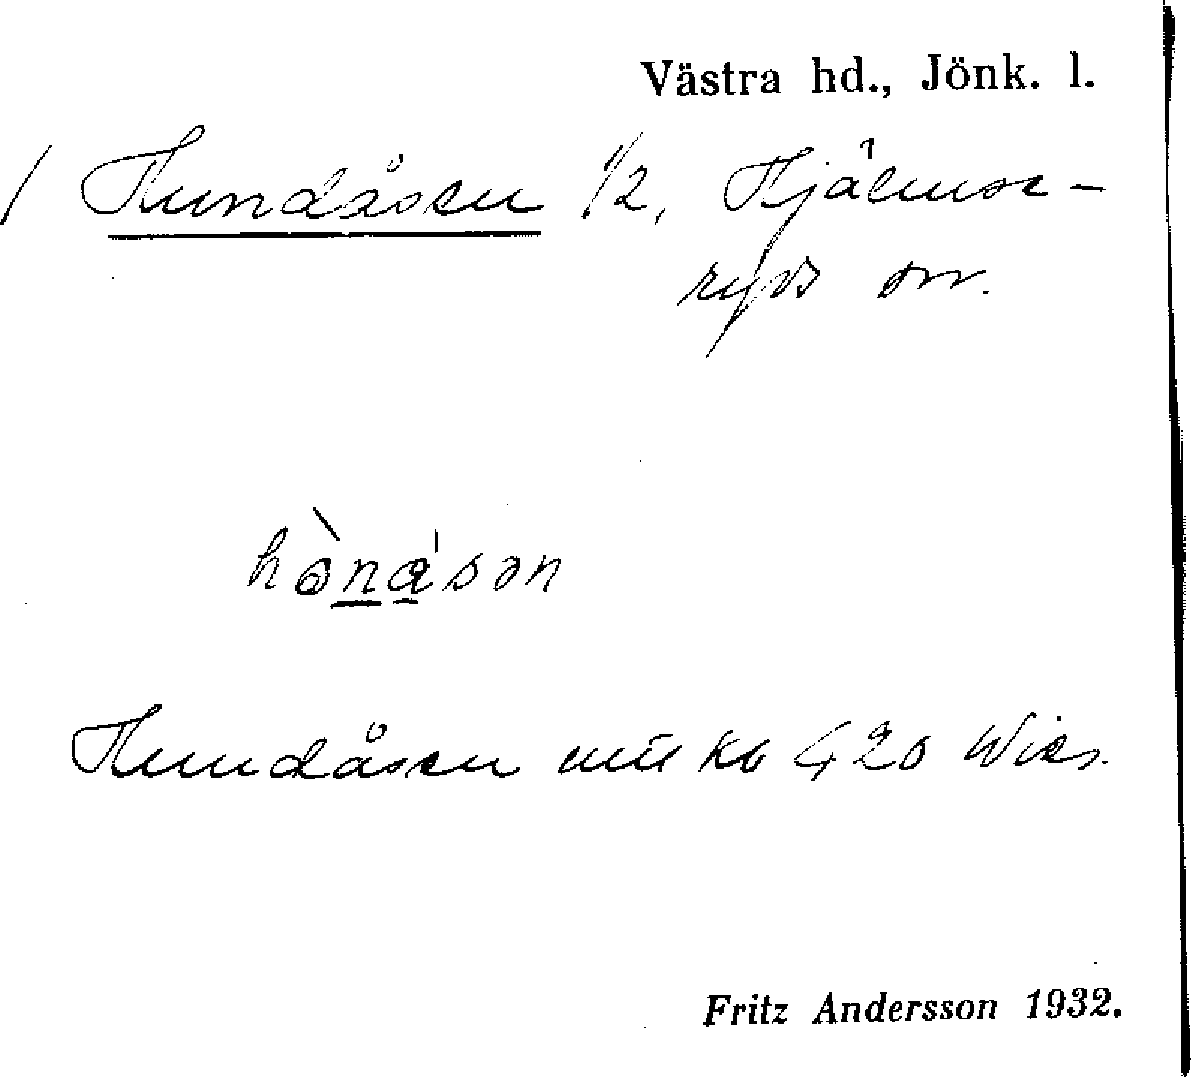 Västra hd., Jönk. l.
/ Hundåsen 1/2, Hjälmse-
ryds sn.
hònåsən
Hundåsen Kb 420 Wies.
Fritz Andersson 1932.